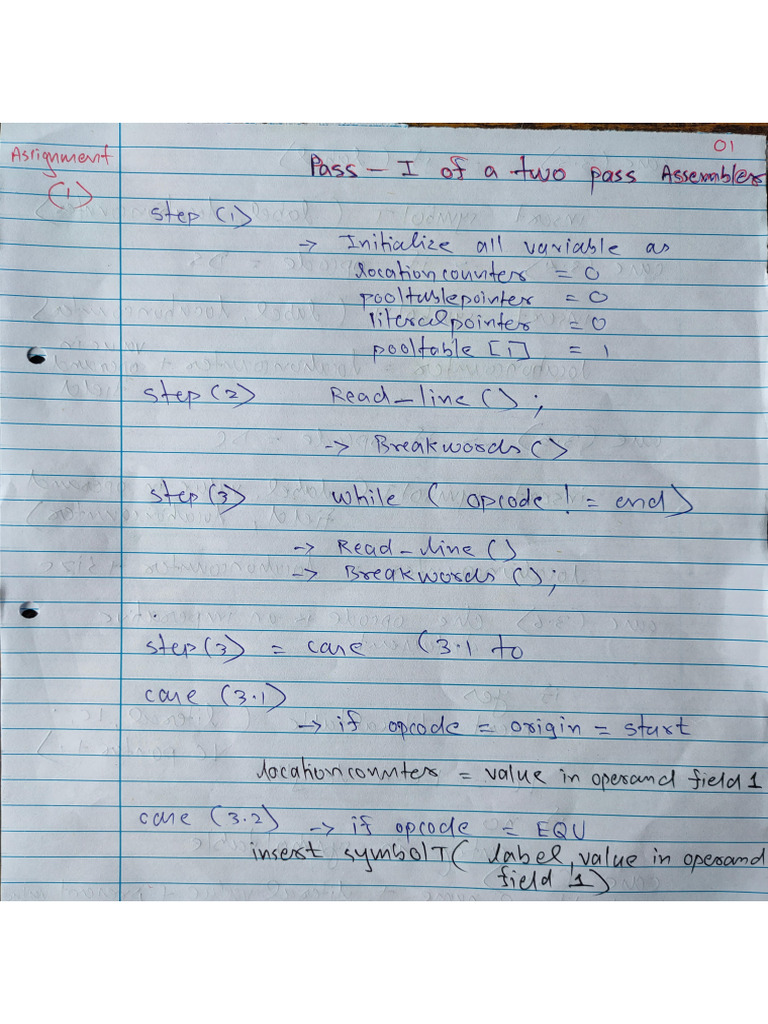 01
Assignment
(1)
Pass - I of a two pass Assembler
step (1)
→ Initialize all variable as
locationcounter = 0
pooltablepointer = 0
literalpointer = 0
pooltable [1] = 1
step (2) Read_line ();
→ Breakwords ()
step (3) while ( opcode != end)
→ Read_line ()
→ Breakwords ();
step (3) = case (3.1 to
case (3.1)
→ if opcode = origin = start
locationcounter = value in operand field 1
case (3.2) → if opcode = EQU
insert symbolT( label, value in operand
field 1)